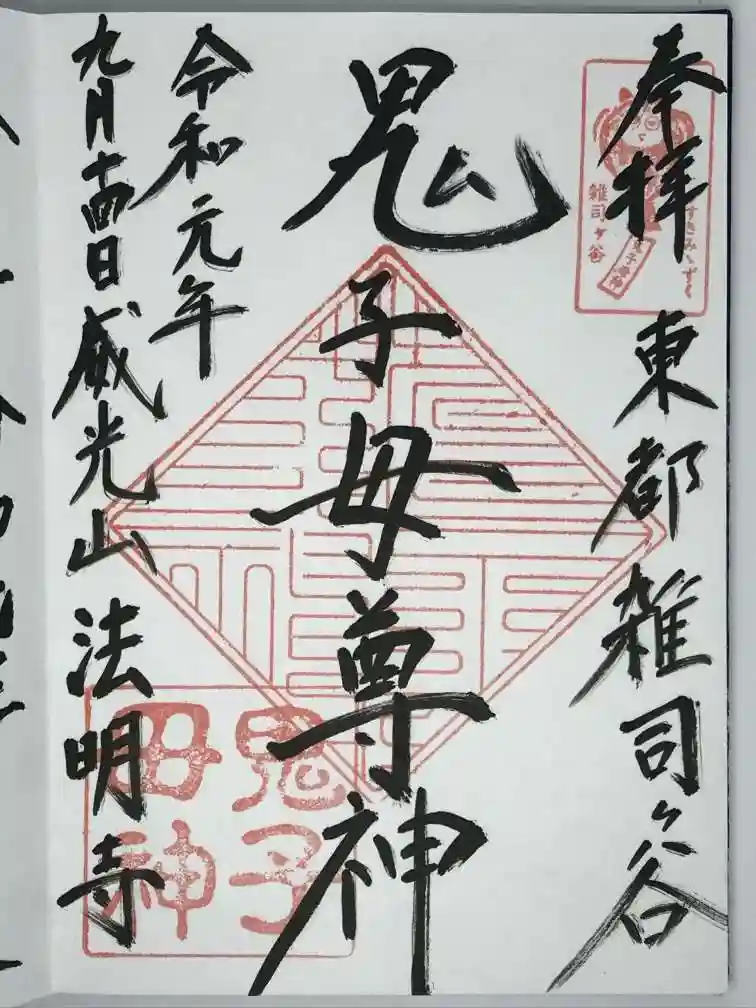 奉拝
東都雑司ヶ谷
すすきみゝずく
雑司ヶ谷
鬼子母尊神
令和元年
九月十四日威光山法明寺
鬼子
母神